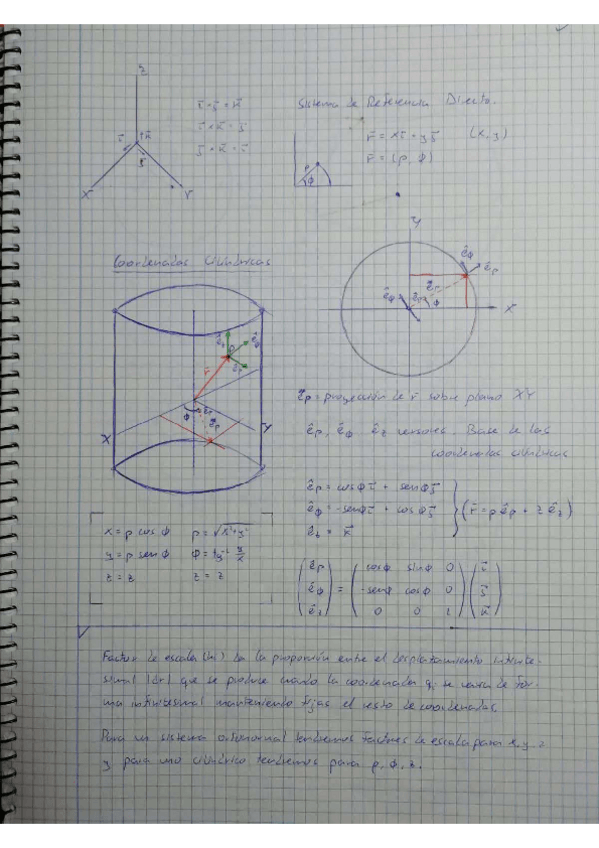 Z
X
Y
ī × j̄ = k̄
Sistema de Referencia Directo.
r̄ = xī + yj̄ (x, y)
r̄ = (ρ, φ)
ρ
φ
Y
X
ê_φ
ê_ρ
φ
Coordenadas Cilíndricas
X
Y
r̄
φ
= proyección de r̄ sobre plano XY
ê_ρ, ê_φ, ê_z versores. Base de las
coordenadas cilíndricas
ê_ρ = cosφ ī + senφ j̄
ê_φ = -senφ ī + cosφ j̄
ê_z = k̄
(r̄ = ρ ê_ρ + z ê_z)
x = ρ cos φ ρ = √x²+y²
y = ρ sen φ φ = tg⁻¹ y/x
z = z z = z
ê_ρ cosφ sinφ 0 ī
ê_φ = -senφ cosφ 0 j̄
ê_z 0 0 1 k̄
Factor de escala (hi) Da la proporción entre el desplazamiento infinite-
simal |dr| que se produce cuando la coordenada qi se varía de for-
ma infinitesimal manteniendo fijas el resto de coordenadas.
Para un sistema ortonormal tendremos factores de escala para x, y, z
y para uno cilíndrico tendremos para ρ, φ, z.